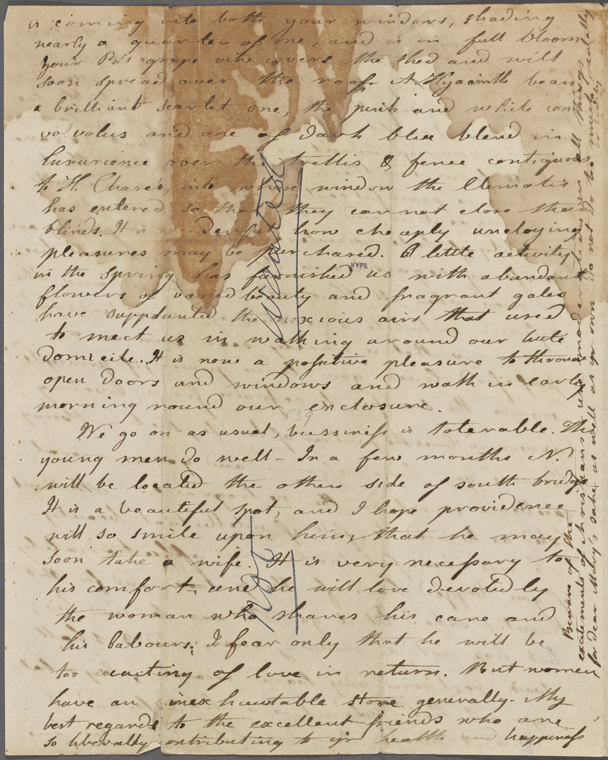 is coming into both your windows, shading
nearly a quarter of one, and is in full bloom
your Pa's grape vine covers the shed and will
soon spread over the roof. A Hyacinth bean
a brilliant scarlet one, the pink and white con
volvolus and one of dark blue blend in
luxurience over the trellis & fence contiguous
to H. Chase's, into whose window the Clematis
has entered so that they cannot close the
blinds. It is wonderful how cheaply uncloying
pleasures may be purchased. A little activity
in the spring has furnished us with abundant
flowers of varied beauty and fragrant gales
have supplanted the noxious airs that used
to meet us in walking around our little
domicile. It is now a positive pleasure to throw
open doors and windows and walk in early
morning round our enclosure.
We go on as usual, bussiness is tolerable. The
young men do well - In a few months N.
will be located the other side of south bridge
It is a beautiful spot, and I hope providence
will so smile upon him, that he may
soon take a wife. It is very necessary to
his comfort, and he will love devotedly
the woman who shares his care and
his labours; I fear only that he will be
too exacting of love in return. But women
have an inexhaustable store generally. My
best regards to the excellent friends who are
so liberally contributing to yr health and happiness
Beware of the
excitements of
for dear Mary's sake as well as yr own do not do too much
NYPL